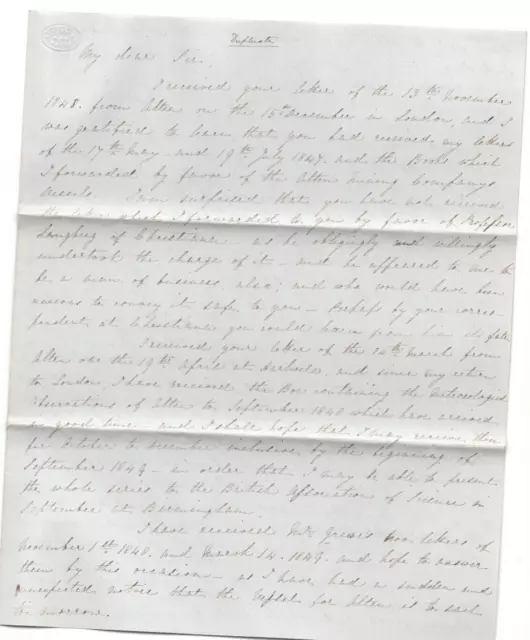 Duplicate
My dear Sir.
I received your letter of the 13th November
1848. from Alten on the 15th December in London, and I
was gratified to learn that you had received my letters
of the 17th May and 19th July 1847. and the Books which
I forwarded by favor of the Alten Mining Companys
vessels. I am surprised that you have not received
the letter which I forwarded to you by favor of
Langberg of Christiana as he obligingly and willingly
undertook the charge of it - and he appeared to me to
be a man of business, also; and who would have been
anxious to convey it safe to you - Perhaps by your corres-
pondent at Christiana you could learn from him its fate
I received your letter of the 24th March from
Alten on the 19th April at and since my return
to London, I have received the Box containing the meteorological
observations of Alten to September 1848 which have arrived
in good time. and I shall hope that I may receive those
for October to December inclusive by the beginning of
September 1849 - in order that I may be able to present
the whole series to the British Association of Science in
September at Birmingham.
I have received Mr letters of
November 1th 1848. and March 14. 1849. and hope to answer
them by this occasion - as I have had a sudden and
unexpected notice that the for Alten is to sail
to morrow.